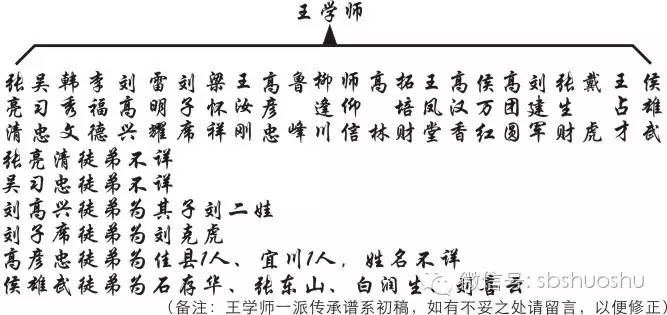 王学师
张亮清
吴习忠
韩秀文
李福德
刘高兴
雷明耀
刘子席
梁怀祥
王汝刚
高彦忠
鲁峰
柳逢川
师仰信
高林
拓培财
王凤堂
高汉香
侯万红
高团圆
刘建军
张生财
戴虎
王占才
侯雄武
张亮清徒弟不详
吴习忠徒弟不详
刘高兴徒弟为其子刘二娃
刘子席徒弟为刘克虎
高彦忠徒弟为佳县1人、宜川1人，姓名不详
侯雄武徒弟为石存华、张东山、白润生、刘云
微信号: sbshuoshu
(备注：王学师一派传承谱系初稿，如有不妥之处请留言，以便修正)